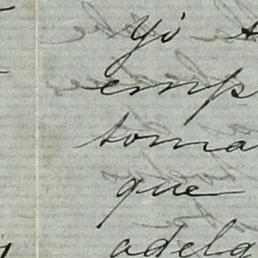 yi
emp
toma
que
adelg